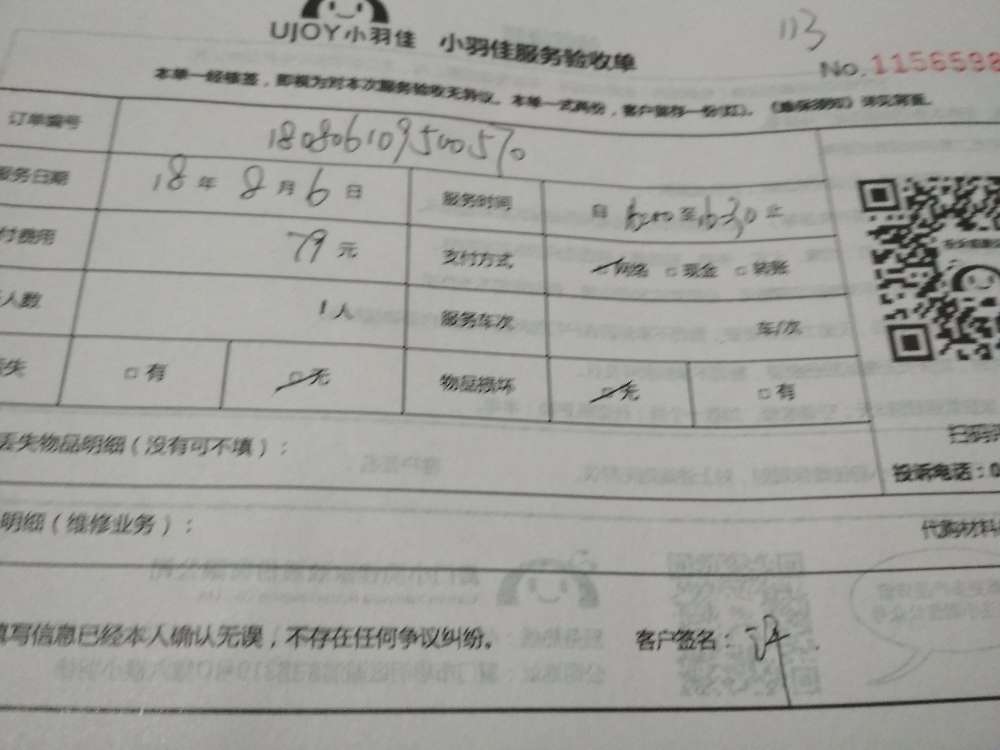 113
UJOY小羽佳 小羽佳服务验收单
No.1156598
本单一经核签，即视为对本次服务验收无异议。本单一式两份，客户留存一份(红)。
订单编号 180806109500570
服务日期 18年8月6日 服务时间 自 至16:30止
付费用 79元 支付方式 网络 □现金 □转账
人数 1人 服务车次 车/次
失 □有 □无 物品损坏 □无 □有
丢失物品明细（没有可不填）：
扫码
投诉电话：0
明细（维修业务）：
代购材料
填写信息已经本人确认无误，不存在任何争议纠纷。 客户签名：